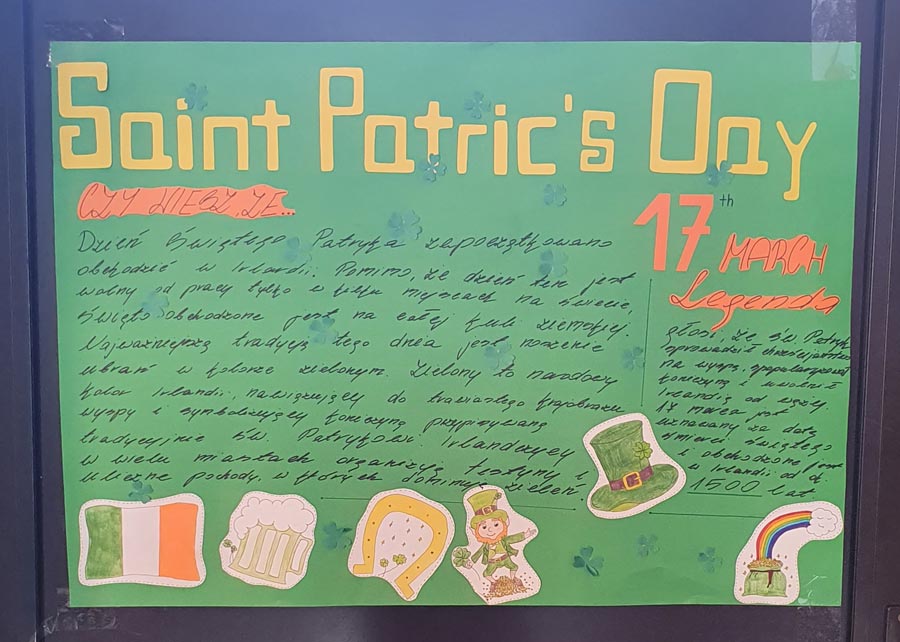 Saint Patric's Day
CZY WIESZ, ŻE...
Dzień Świętego Patryka zapoczątkowano
obchodzić w Irlandii. Pomimo, że dzień ten jest
wolny od pracy tylko w kilku miejscach na świecie,
święto obchodzone jest na całej kuli ziemskiej.
Najważniejszą tradycją tego dnia jest noszenie
ubrań w kolorze zielonym. Zielony to narodowy
kolor Irlandii, nawiązujący do trawiastego krajobrazu
wyspy i symbolizujący koniczynę przypisywaną
tradycyjnie św. Patrykowi. Irlandczycy
w wielu miastach organizują festyny i
uliczne pochody, w których dominuje zieleń.
17th
MARCH
Legenda
głosi, że św. Patryk
sprowadził chrześcijaństwo
na wyspę, spopularyzował
koniczynę i uwolnił
Irlandię od węży.
17 marca jest
uznawany za datę
śmierci świętego
i obchodzone jest
w Irlandii od ok.
1500 lat